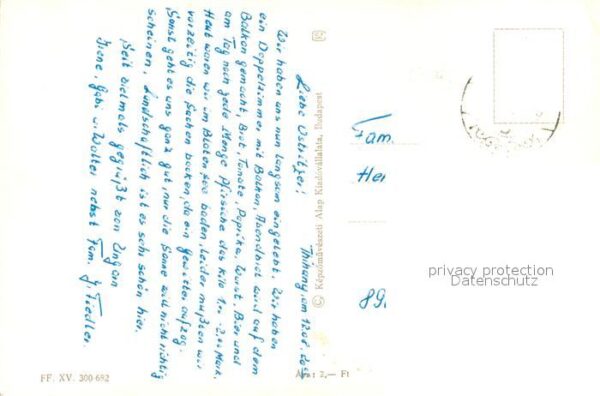 Tihany, am 12.08.
Liebe Ostritzer!
Wir haben uns nun langsam eingelebt. Wir haben
ein Doppelzimmer mit Balkon, Abendbrot wird auf dem
Balkon gemacht, Brot, Tomate, Paprika, Wurst, Bier und
am Tag noch jede Menge Pfirsiche das Kilo 1,- 2,- Mark.
Heut waren wir im Blatensee baden, leider mußten wir
vorzeitig die Sachen packen, da ein Gewitter aufzog.
Sonst geht es uns ganz gut, nur die Sonne will nicht richtig
scheinen. Landschaftlich ist es sehr schön hier.
Seit vielmals gegrüßt von Ungarn
Gabi u. Walter nebst Fam. Fiedler.
© Képzőművészeti Alap Kiadóvállalata, Budapest
Fam.
Her
89.
privacy protection
Datenschutz
FF. XV. 300 682
Ára: 2,— Ft